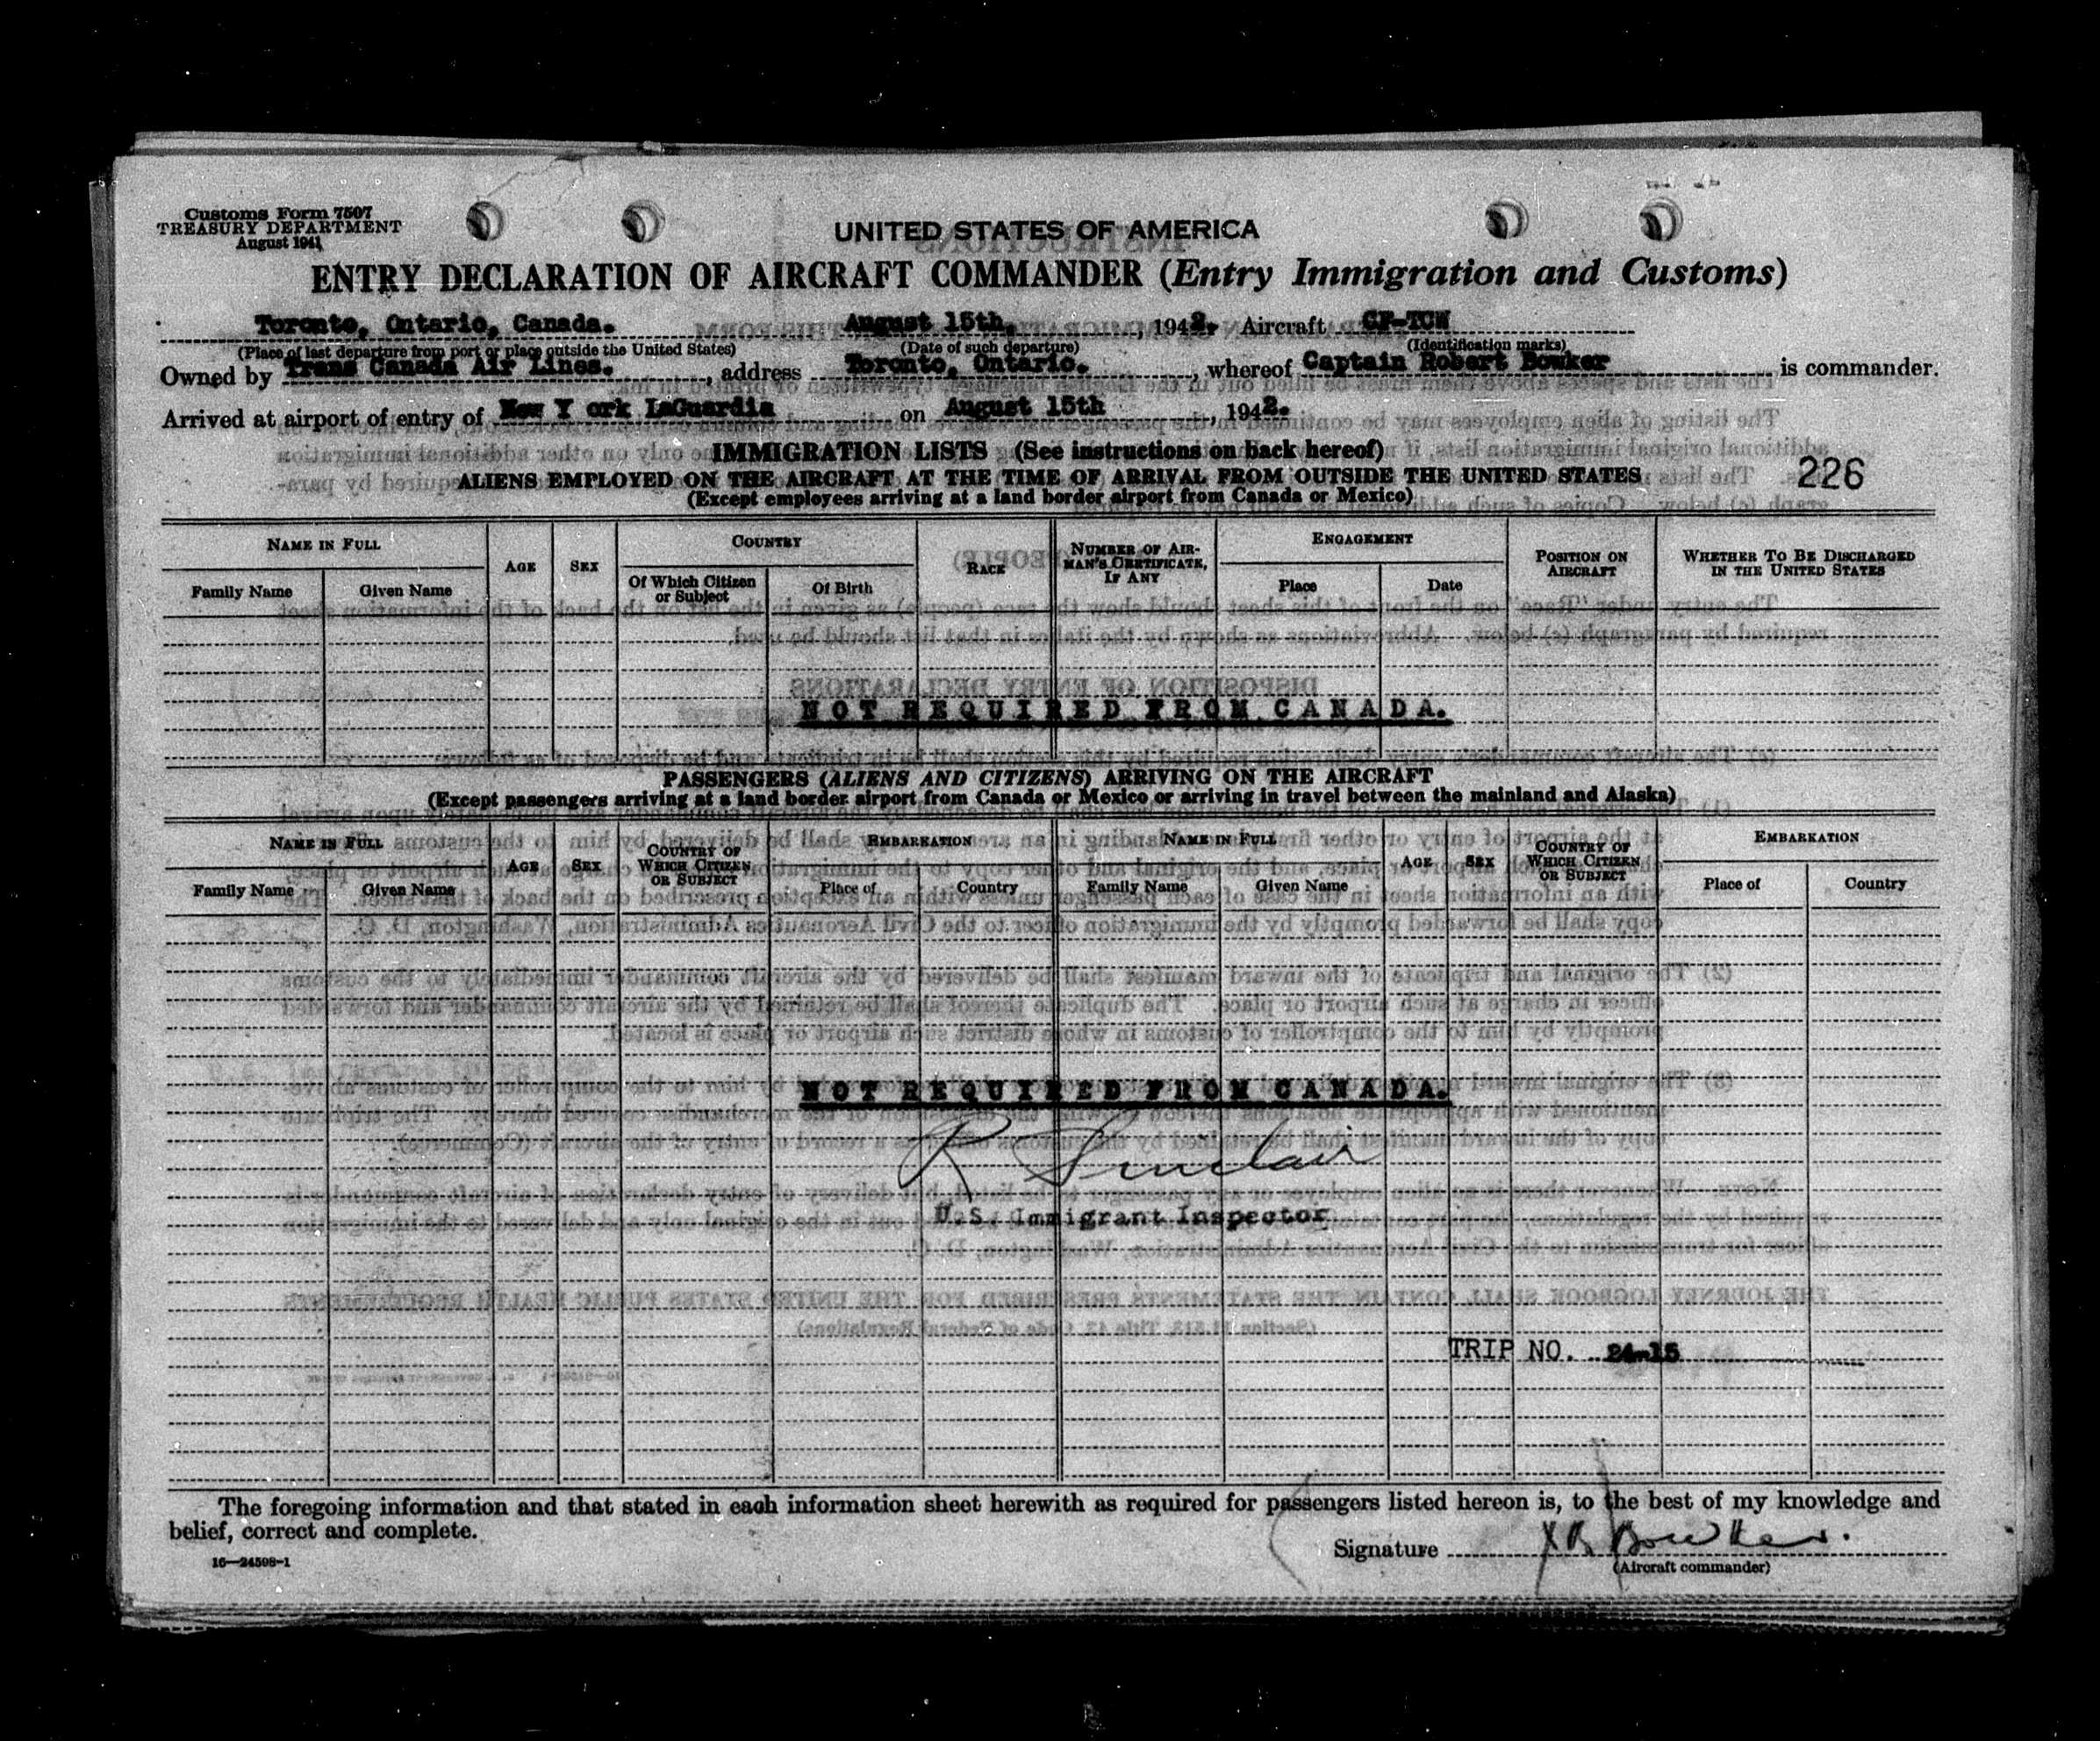 Customs Form 7507
TREASURY DEPARTMENT
August 1941
UNITED STATES OF AMERICA
ENTRY DECLARATION OF AIRCRAFT COMMANDER (Entry Immigration and Customs)
Toronto, Ontario, Canada. August 15th, , 1942. Aircraft CF-TCW
(Place of last departure from port or place outside the United States) (Date of such departure) (Identification marks)
Owned by Trans Canada Air Lines. , address Toronto, Ontario. , whereof Captain Robert Bowker is commander.
Arrived at airport of entry of New Y ork LaGuardia on August 15th , 1942.
IMMIGRATION LISTS (See instructions on back hereof)
ALIENS EMPLOYED ON THE AIRCRAFT AT THE TIME OF ARRIVAL FROM OUTSIDE THE UNITED STATES 226
(Except employees arriving at a land border airport from Canada or Mexico)
NAME IN FULL AGE SEX COUNTRY RACE NUMBER OF AIR-MAN'S CERTIFICATE, IF ANY ENGAGEMENT POSITION ON AIRCRAFT WHETHER TO BE DISCHARGED IN THE UNITED STATES
Family Name Given Name Of Which Citizen or Subject Of Birth Place Date
NOT REQUIRED FROM CANADA.
PASSENGERS (ALIENS AND CITIZENS) ARRIVING ON THE AIRCRAFT
(Except passengers arriving at a land border airport from Canada or Mexico or arriving in travel between the mainland and Alaska)
NAME IN FULL AGE SEX COUNTRY OF WHICH CITIZEN OR SUBJECT EMBARKATION NAME IN FULL AGE SEX COUNTRY OF WHICH CITIZEN OR SUBJECT EMBARKATION
Family Name Given Name Place of Country Family Name Given Name Place of Country
NOT REQUIRED FROM CANADA.
R Sinclair
U.S. Immigrant Inspector
TRIP NO. 24-15
The foregoing information and that stated in each information sheet herewith as required for passengers listed hereon is, to the best of my knowledge and
belief, correct and complete.
Signature Bowker.
16—24508-1 (Aircraft commander)